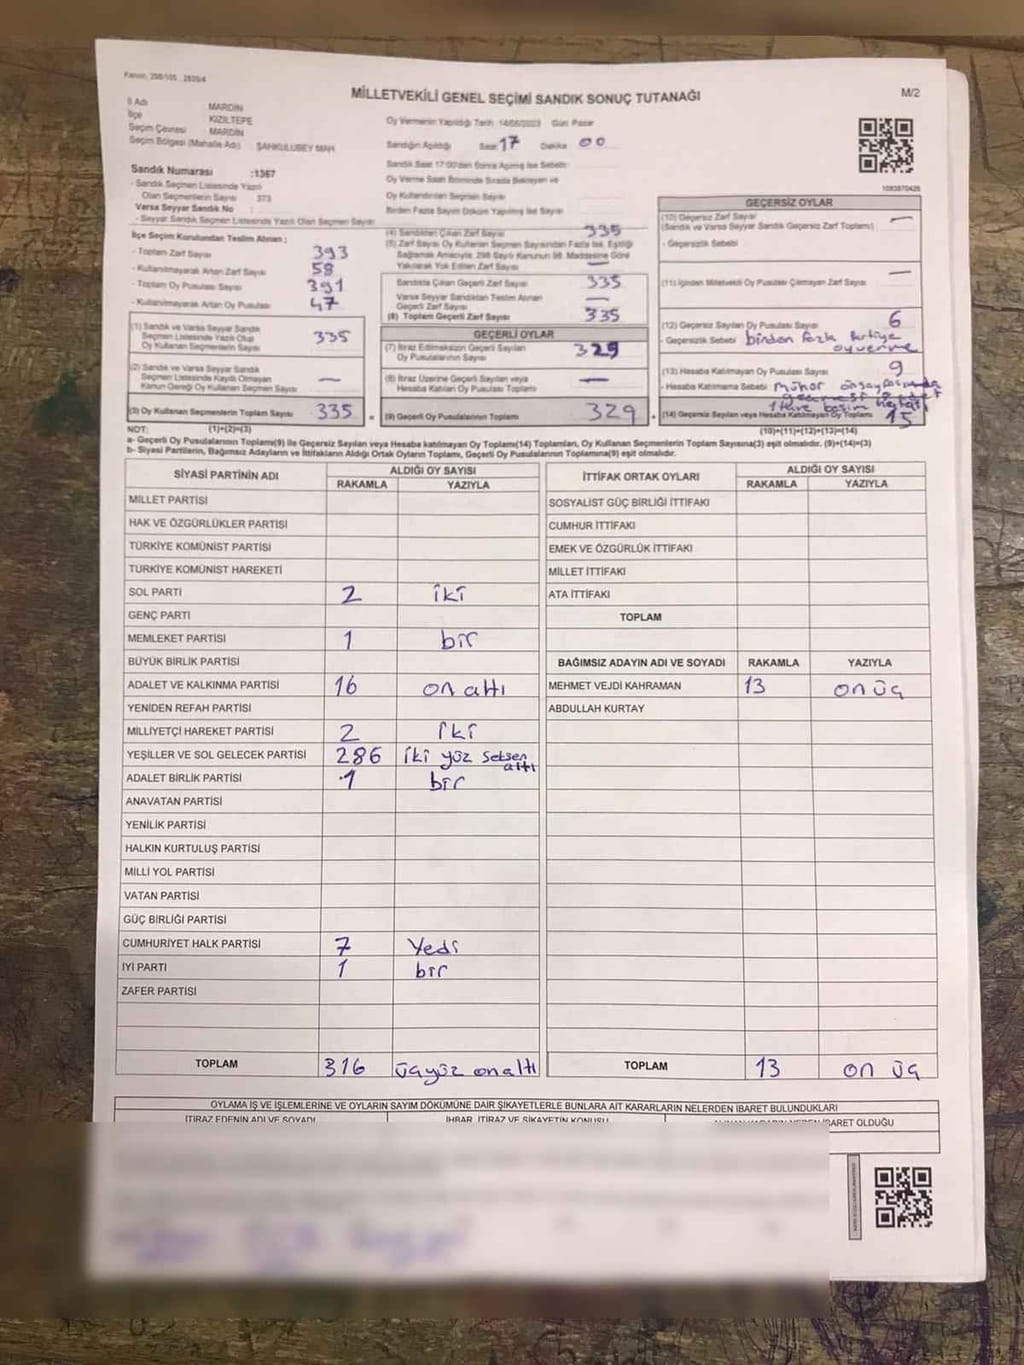 MİLLETVEKİLİ GENEL SEÇİMİ SANDIK SONUÇ TUTANAĞI
M/2
İl Adı MARDİN
İlçe KIZILTEPE
Seçim Çevresi MARDİN
Seçim Bölgesi (Mahalle Adı) ŞAHKULUBEY MAH
Oy Vermenin Yapıldığı Tarih 14/05/2023 Gün Pazar
Sandığın Açıldığı Saat 17 Dakika 00
Sandık Saat 17:00'den Sonra Açılmış İse Sebebi
Oy Verme Saati Bitiminde Sırada Bekleyen ve
Oy Kullandırılan Seçmen Sayısı
Birden Fazla Sayım Döküm Yapılmış İse Sayısı
Sandık Numarası :1367
- Sandık Seçmen Listesinde Yazılı
Olan Seçmenlerin Sayısı 373
Varsa Seyyar Sandık No
- Seyyar Sandık Seçmen Listesinde Yazılı Olan Seçmen Sayısı
İlçe Seçim Kurulundan Teslim Alınan ;
- Toplam Zarf Sayısı 393
- Kullanılmayarak Artan Zarf Sayısı 58
- Toplam Oy Pusulası Sayısı 391
- Kullanılmayarak Artan Oy Pusulası 47
(1) Sandık ve Varsa Seyyar Sandık
Seçmen Listesinde Yazılı Olup
Oy Kullanan Seçmenlerin Sayısı 335
(2) Sandık ve Varsa Seyyar Sandık
Seçmen Listesinde Kayıtlı Olmayan
Kanun Gereği Oy Kullanan Seçmen Sayısı —
(3) Oy Kullanan Seçmenlerin Toplam Sayısı 335
(4) Sandıktan Çıkan Zarf Sayısı 335
(5) Zarf Sayısı Oy Kullanan Seçmen Sayısından Fazla İse, Eşitliği
Sağlamak Amacıyla; 298 Sayılı Kanunun 98. Maddesine Göre
Yakılarak Yok Edilen Zarf Sayısı —
Sandıkta Çıkan Geçerli Zarf Sayısı 335
Varsa Seyyar Sandıktan Teslim Alınan
Geçerli Zarf Sayısı —
(6) Toplam Geçerli Zarf Sayısı 335
GEÇERLİ OYLAR
(7) İtiraz Edilmeksizin Geçerli Sayılan
Oy Pusulalarının Sayısı 329
(8) İtiraz Üzerine Geçerli Sayılan veya
Hesaba Katılan Oy Pusulası Toplamı —
(9) Geçerli Oy Pusulalarının Toplamı 329
GEÇERSİZ OYLAR
(10) Geçersiz Zarf Sayısı —
(Sandık ve Varsa Seyyar Sandık Geçersiz Zarf Toplamı)
- Geçersizlik Sebebi
(11) İçinden Milletvekili Oy Pusulası Çıkmayan Zarf Sayısı —
(12) Geçersiz Sayılan Oy Pusulası Sayısı 6
- Geçersizlik Sebebi birden fazla partiye
oy verme
(13) Hesaba Katılmayan Oy Pusulası Sayısı 9
- Hesaba Katılmama Sebebi mühür
(14) Geçersiz Sayılan veya Hesaba Katılmayan Oy Toplamı 15
NOT: (1)+(2)=(3) (10)+(11)+(12)+(13)=(14)
a- Geçerli Oy Pusulalarının Toplamı(9) ile Geçersiz Sayılan veya Hesaba katılmayan Oy Toplamı(14) Toplamları, Oy Kullanan Seçmenlerin Toplam Sayısına(3) eşit olmalıdır. (9)+(14)=(3)
b- Siyasi Partilerin, Bağımsız Adayların ve İttifakların Aldığı Ortak Oyların Toplamı, Geçerli Oy Pusulalarının Toplamına(9) eşit olmalıdır.
SİYASİ PARTİNİN ADI ALDIĞI OY SAYISI
RAKAMLA YAZIYLA
MİLLET PARTİSİ
HAK VE ÖZGÜRLÜKLER PARTİSİ
TÜRKİYE KOMÜNİST PARTİSİ
TÜRKİYE KOMÜNİST HAREKETİ
SOL PARTİ 2 iki
GENÇ PARTİ
MEMLEKET PARTİSİ 1 bir
BÜYÜK BİRLİK PARTİSİ
ADALET VE KALKINMA PARTİSİ 16 on altı
YENİDEN REFAH PARTİSİ
MİLLİYETÇİ HAREKET PARTİSİ 2 iki
YEŞİLLER VE SOL GELECEK PARTİSİ 286 iki yüz seksen
altı
ADALET BİRLİK PARTİSİ 1 bir
ANAVATAN PARTİSİ
YENİLİK PARTİSİ
HALKIN KURTULUŞ PARTİSİ
MİLLİ YOL PARTİSİ
VATAN PARTİSİ
GÜÇ BİRLİĞİ PARTİSİ
CUMHURİYET HALK PARTİSİ 7 Yedi
İYİ PARTİ 1 bir
ZAFER PARTİSİ
TOPLAM 316 üçyüz onaltı
İTTİFAK ORTAK OYLARI ALDIĞI OY SAYISI
RAKAMLA YAZIYLA
SOSYALİST GÜÇ BİRLİĞİ İTTİFAKI
CUMHUR İTTİFAKI
EMEK VE ÖZGÜRLÜK İTTİFAKI
MİLLET İTTİFAKI
ATA İTTİFAKI
TOPLAM
BAĞIMSIZ ADAYIN ADI VE SOYADI RAKAMLA YAZIYLA
MEHMET VEJDİ KAHRAMAN 13 on üç
ABDULLAH KURTAY
TOPLAM 13 on üç
OYLAMA İŞ VE İŞLEMLERİNE VE OYLARIN SAYIM DÖKÜMÜNE DAİR ŞİKAYETLERLE BUNLARA AİT KARARLARIN NELERDEN İBARET BULUNDUKLARI
İTİRAZ EDENİN ADI VE SOYADI İHBAR, İTİRAZ VE ŞİKAYETİN KONUSU İBARET OLDUĞU